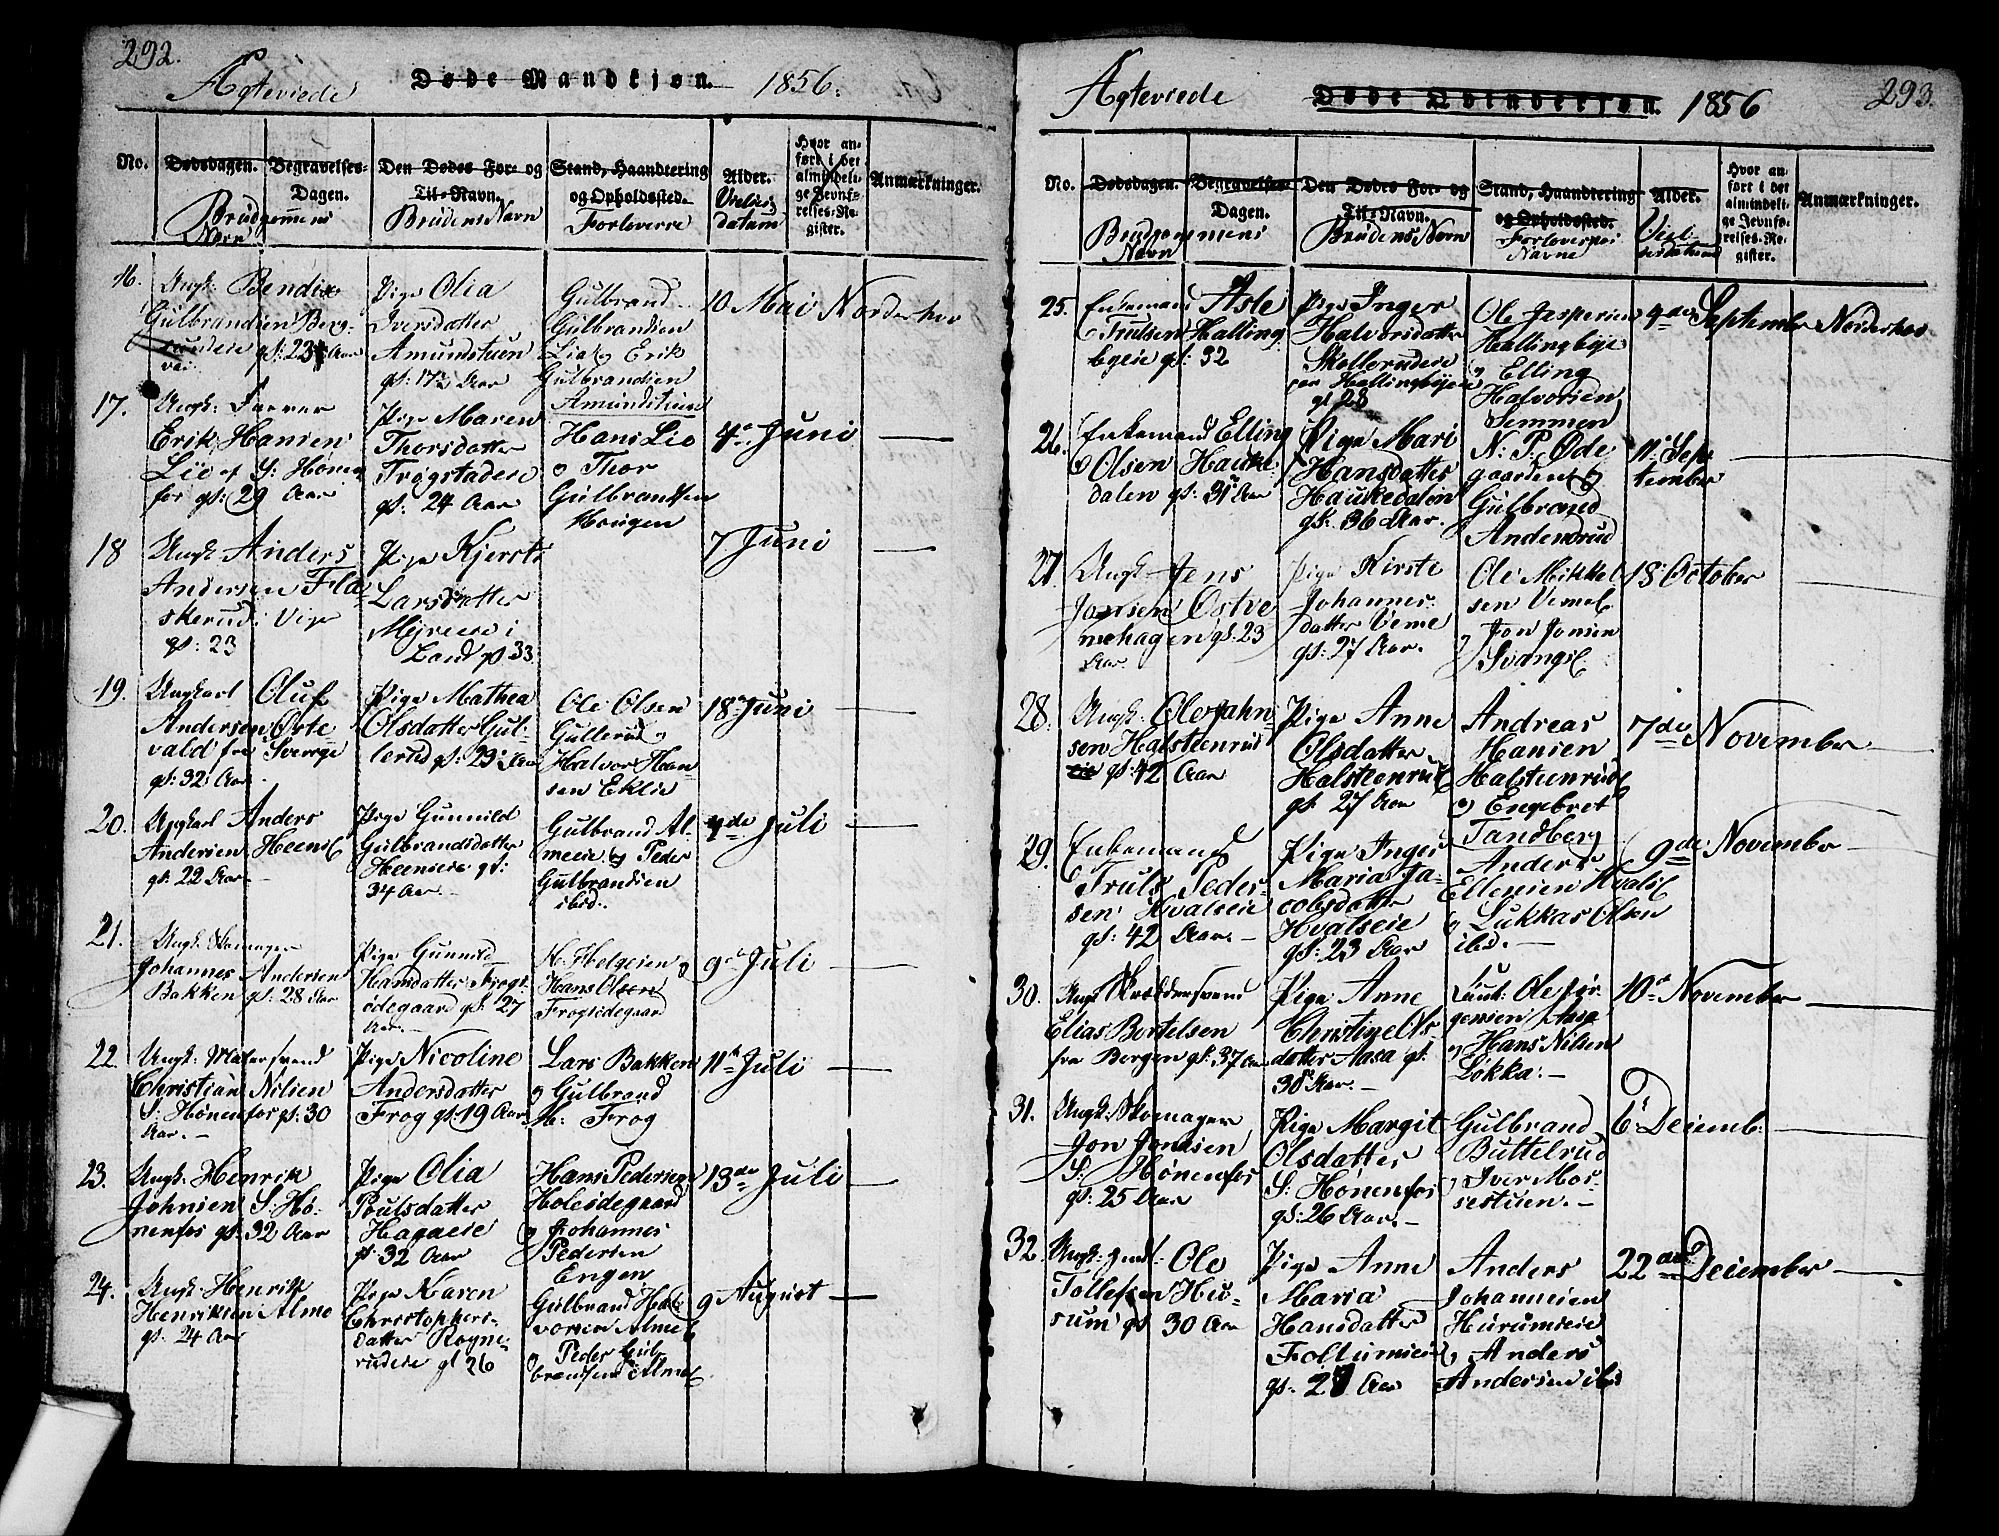 292.
Ægteviede Døde Mandkjøn. 1856.
No. Dødsdagen. Begravelses-Dagen. Den Dødes For- og Til-Navn. Stand, Haandtering og Opholdssted. Alder. Hvor anført i det almindelige Jevnførelses-Register. Anmærkninger.
Brudgommens Navn
Brudens Navn
Forlovere
Vielses datum
16. Ungk: Bendix
Gulbrandsen Berg-
rudeie gl: 23 Aar
Pige Olia
Iversdatter
Amundstuen
gl: 17½ Aar
Gulbrand
Gulbrandsen
Lia og Erik
Gulbrandsen
Amundstuen
10. Mai Norderhov
17. Ungk: Farver
Erik Hansen
Lie af S: Hønen
fos gl: 29 Aar
Pige Maren
Thorsdatter
Trøgstadeie
gl: 24 Aar
Hans Lie
og Thor
Gulbrandsen
Hougen
4de Juni —
18 Ungk: Anders
Andersen Fla-
skerud: Viger
gl: 23
Pige Kjersti
Larsdatter
Myreeie i
Land gl 33
7 Juni —
19. Ungkarl Oluf
Andersen Øste
vald fra Sverrge
gl: 32 Aar
Pige Mathea
Olsdatter Gul-
lerud gl: 23 Aar
Ole Olsen
Gullerud og
Halvor Han-
sen Eklie
18de Juni —
20. Ungkarl Anders
Andersen Heens
gl: 22 Aar.
Pige Gunnild
Gulbrandsdatter
Heenseie gl:
34 Aar.
Gulbrand Al-
meeie og Peder
Gulbrandsen
ibid.
4de Juli —
21. Ungk: Skomager
Johannes Andersen
Bakken gl: 28 Aar
Pige Gunnild
Hansdatter Frogs-
ødegaard gl: 27
Aar.
H. Helgesen og
Hans Olsen
Frogsødegaard
9de Juli —
22. Ungk: Malersvend
Christian Nilsen
S: Hønenfos gl: 30
Aar. —
Pige Nicoline
Andersdatter
Frog gl: 19 Aar
Lars Bakken
og Gulbrand
M: Frog
11te Juli —
23. Ungk: Henrik
Johnsen S: Hø-
nenfos gl: 32 Aar
Pige Olia
Poulsdatter
Hagaeie
gl: 32 Aar
Hans Pedersen
Holesdegaard
og Johannes
Pedersen
Engen
13de Juli —
24. Ungk: Henrik
Henriksen Alme
gl: 24 Aar
Pige Karen
Christophers-
datter Rogne-
rudeie gl 26
Gulbrand Hal-
vorsen Alme
og Peder Gul-
brandsen Alme
9 August —
293.
Ægteviede Døde Qvindekjøn. 1856
No. Dødsdagen. Begravelses-Dagen. Den Dødes For- og Til-Navn. Stand, Haandtering og Opholdssted. Alder. Hvor anført i det almindelige Jevnførelses-Register. Anmærkninger.
Brudgommens
Navn
Brudens Navn
Forlovernes
Navne
25. Enkemand Asle
Trulsen Halling-
byeie gl: 32
Pige Inger
Halvorsdatter
Skollerudeie
Hallingbyeie
gl 28
Ole Jaspersen
Hallingbye
og Elling
Halvorsen
Semmen
4de September Norderhov
26. Enkemand Elling
Olsen Hauke
dalen gl: 31 Aar
Pige Mari
Hansdatter
Haukedalen
gl: 36 Aar.
N: P. Øde
gaarden og
Gulbrand
Andersrud
11te Sep-
tember —
27 Ungk: Jens
Jonsen Østve
mehagen gl: 23
Aar.
Pige Kirsti
Johannes-
datter Veme
gl: 27 Aar.
Ole Mikkel
sen Veme
og Jon Jonsen
Svang
18 October —
28. Ungk: Ole Jahn-
sen Halsteenrud
gl: 42 Aar
Pige Anne
Olsdatter
Halsteenrud
gl: 27 Aar
Andreas
Hansen
Halsteenrud
og Engebret
Tandberg
7de November —
29. Enkemand
Truls Peder-
sen Hvalseie
gl: 42 Aar. —
Pige Inger
Maria Ja-
cobsdatter
Hvalseie
gl: 23 Aar
Anders
Ellensen Hvals
og Lukkas Olsen
ibid. —
9de November —
30. Ungk: Skræddersvend
Elias Bertelsen
fra Bergen gl: 37 Aar
Pige Anne
Christine Ols-
datter Aasa gl:
38 Aar. —
Lieut: Ole Jør-
gensen Aasa
og Hans Nilsen
Løkka: —
10de November —
31. Ungk: Skomager
Jon Jondsen
S: Hønenfos
gl: 25 Aar
Pige Margit
Olsdatter
S: Hønenfos
gl: 26 Aar. —
Gulbrand
Buttelrud
og Iver Mos-
sestuen. —
6te Decemb: —
32. Ungk: Ole
Tollefsen Hu-
rum gl 30 Aar
Pige Anne
Maria
Hansdatter
Follumseie
gl: 27 Aar
Anders
Johannesen
Hurumseie
og Anders
Andersen ibid
22de December —